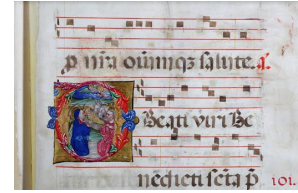 p nr̃a oiumqꝫ salute. a.
Beati viri Be
nedicti scta p̄ 101.